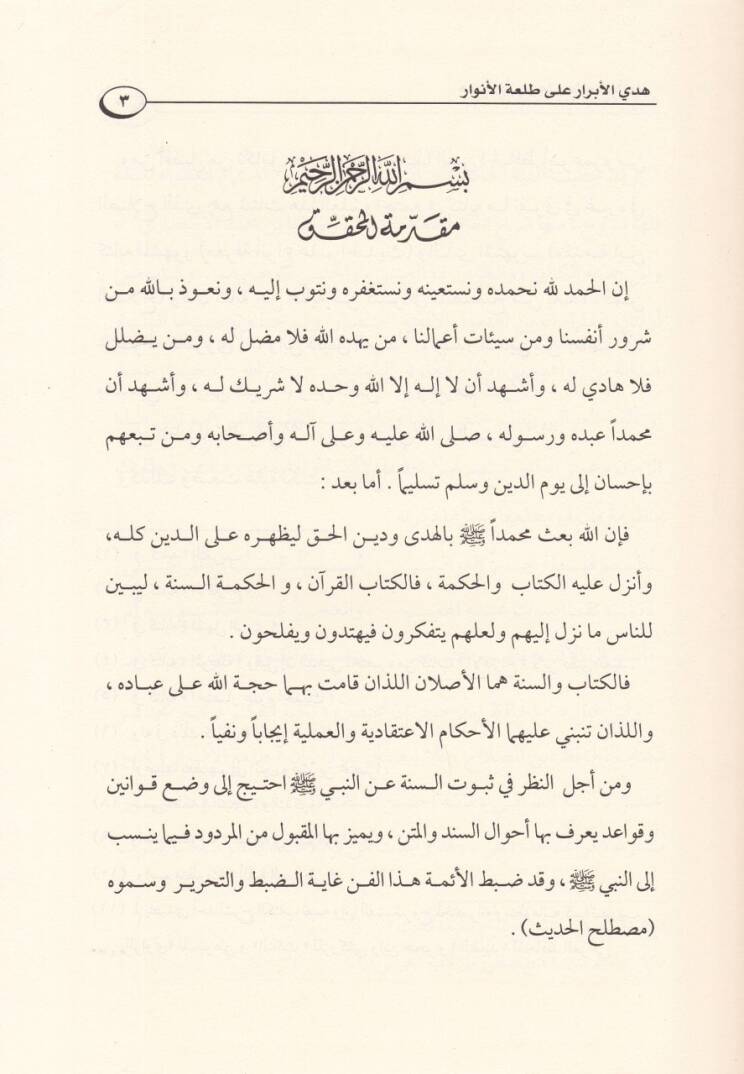 هدي الأبرار على طلعة الأنوار
٣
بسم الله الرحمن الرحيم
مقدمة المحقق
إن الحمد لله نحمده ونستعينه ونستغفره ونتوب إليه ، ونعوذ بالله من
شرور أنفسنا ومن سيئات أعمالنا ، من يهده الله فلا مضل له ، ومن يضلل
فلا هادي له ، وأشهد أن لا إله إلا الله وحده لا شريك له ، وأشهد أن
محمداً عبده ورسوله ، صلى الله عليه وعلى آله وأصحابه ومن تبعهم
بإحسان إلى يوم الدين وسلم تسليماً . أما بعد :
فإن الله بعث محمداً ﷺ بالهدى ودين الحق ليظهره على الدين كله،
وأنزل عليه الكتاب والحكمة ، فالكتاب القرآن ، و الحكمة السنة ، ليبين
للناس ما نزل إليهم ولعلهم يتفكرون فيهتدون ويفلحون .
فالكتاب والسنة هما الأصلان اللذان قامت بهما حجة الله على عباده ،
واللذان تنبني عليهما الأحكام الاعتقادية والعملية إيجاباً ونفياً .
ومن أجل النظر في ثبوت السنة عن النبي ﷺ احتيج إلى وضع قوانين
وقواعد يعرف بها أحوال السند والمتن ، ويميز بها المقبول من المردود فيما ينسب
إلى النبي ﷺ ، وقد ضبط الأئمة هذا الفن غاية الضبط والتحرير وسموه
(مصطلح الحديث) .